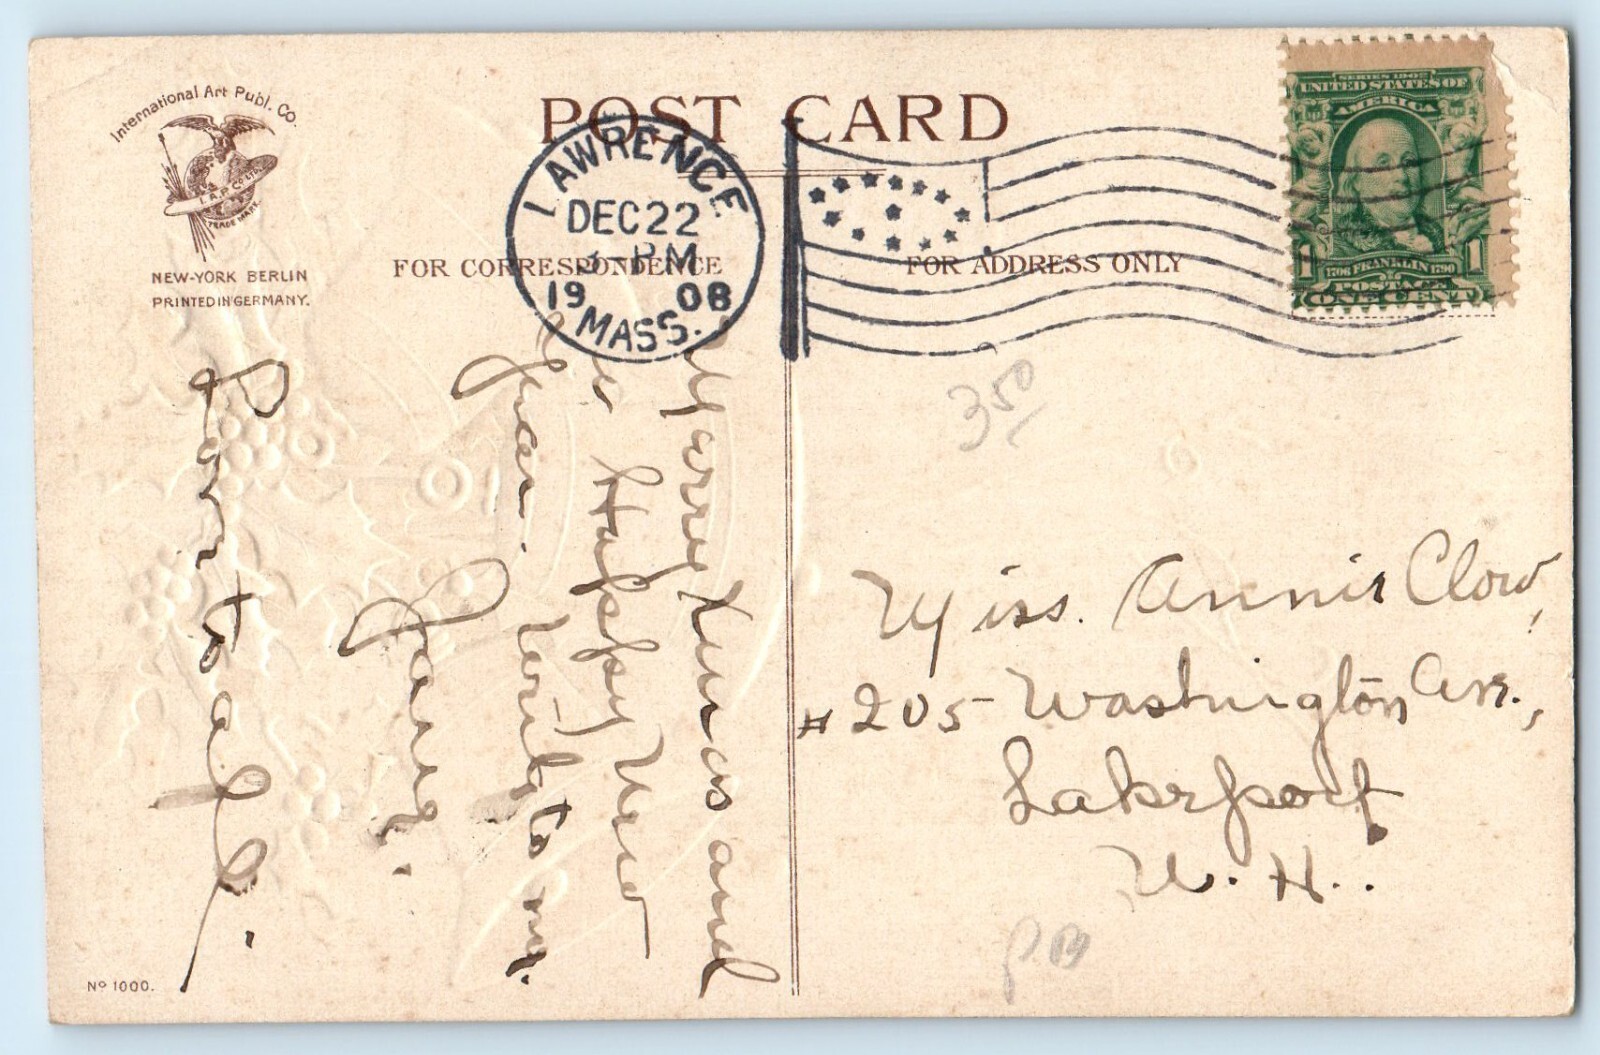 International Art Publ. Co.
I. A. P. Co. LTD.
TRADE MARK.
NEW-YORK BERLIN
PRINTED IN GERMANY.
POST CARD
FOR CORRESPONDENCE
FOR ADDRESS ONLY
LAWRENCE
DEC 22
3 - PM
1908
MASS.
SERIES 1902
UNITED STATES OF
AMERICA
1 1
1706 FRANKLIN 1790
POSTAGE
ONE CENT
Merry Xmas and
a Happy New
Year. Write to me.
Jane.
Love to all.
350
Miss. Annie Clow,
# 205 Washington Ave.,
Lakeport
N. H..
Nº 1000.